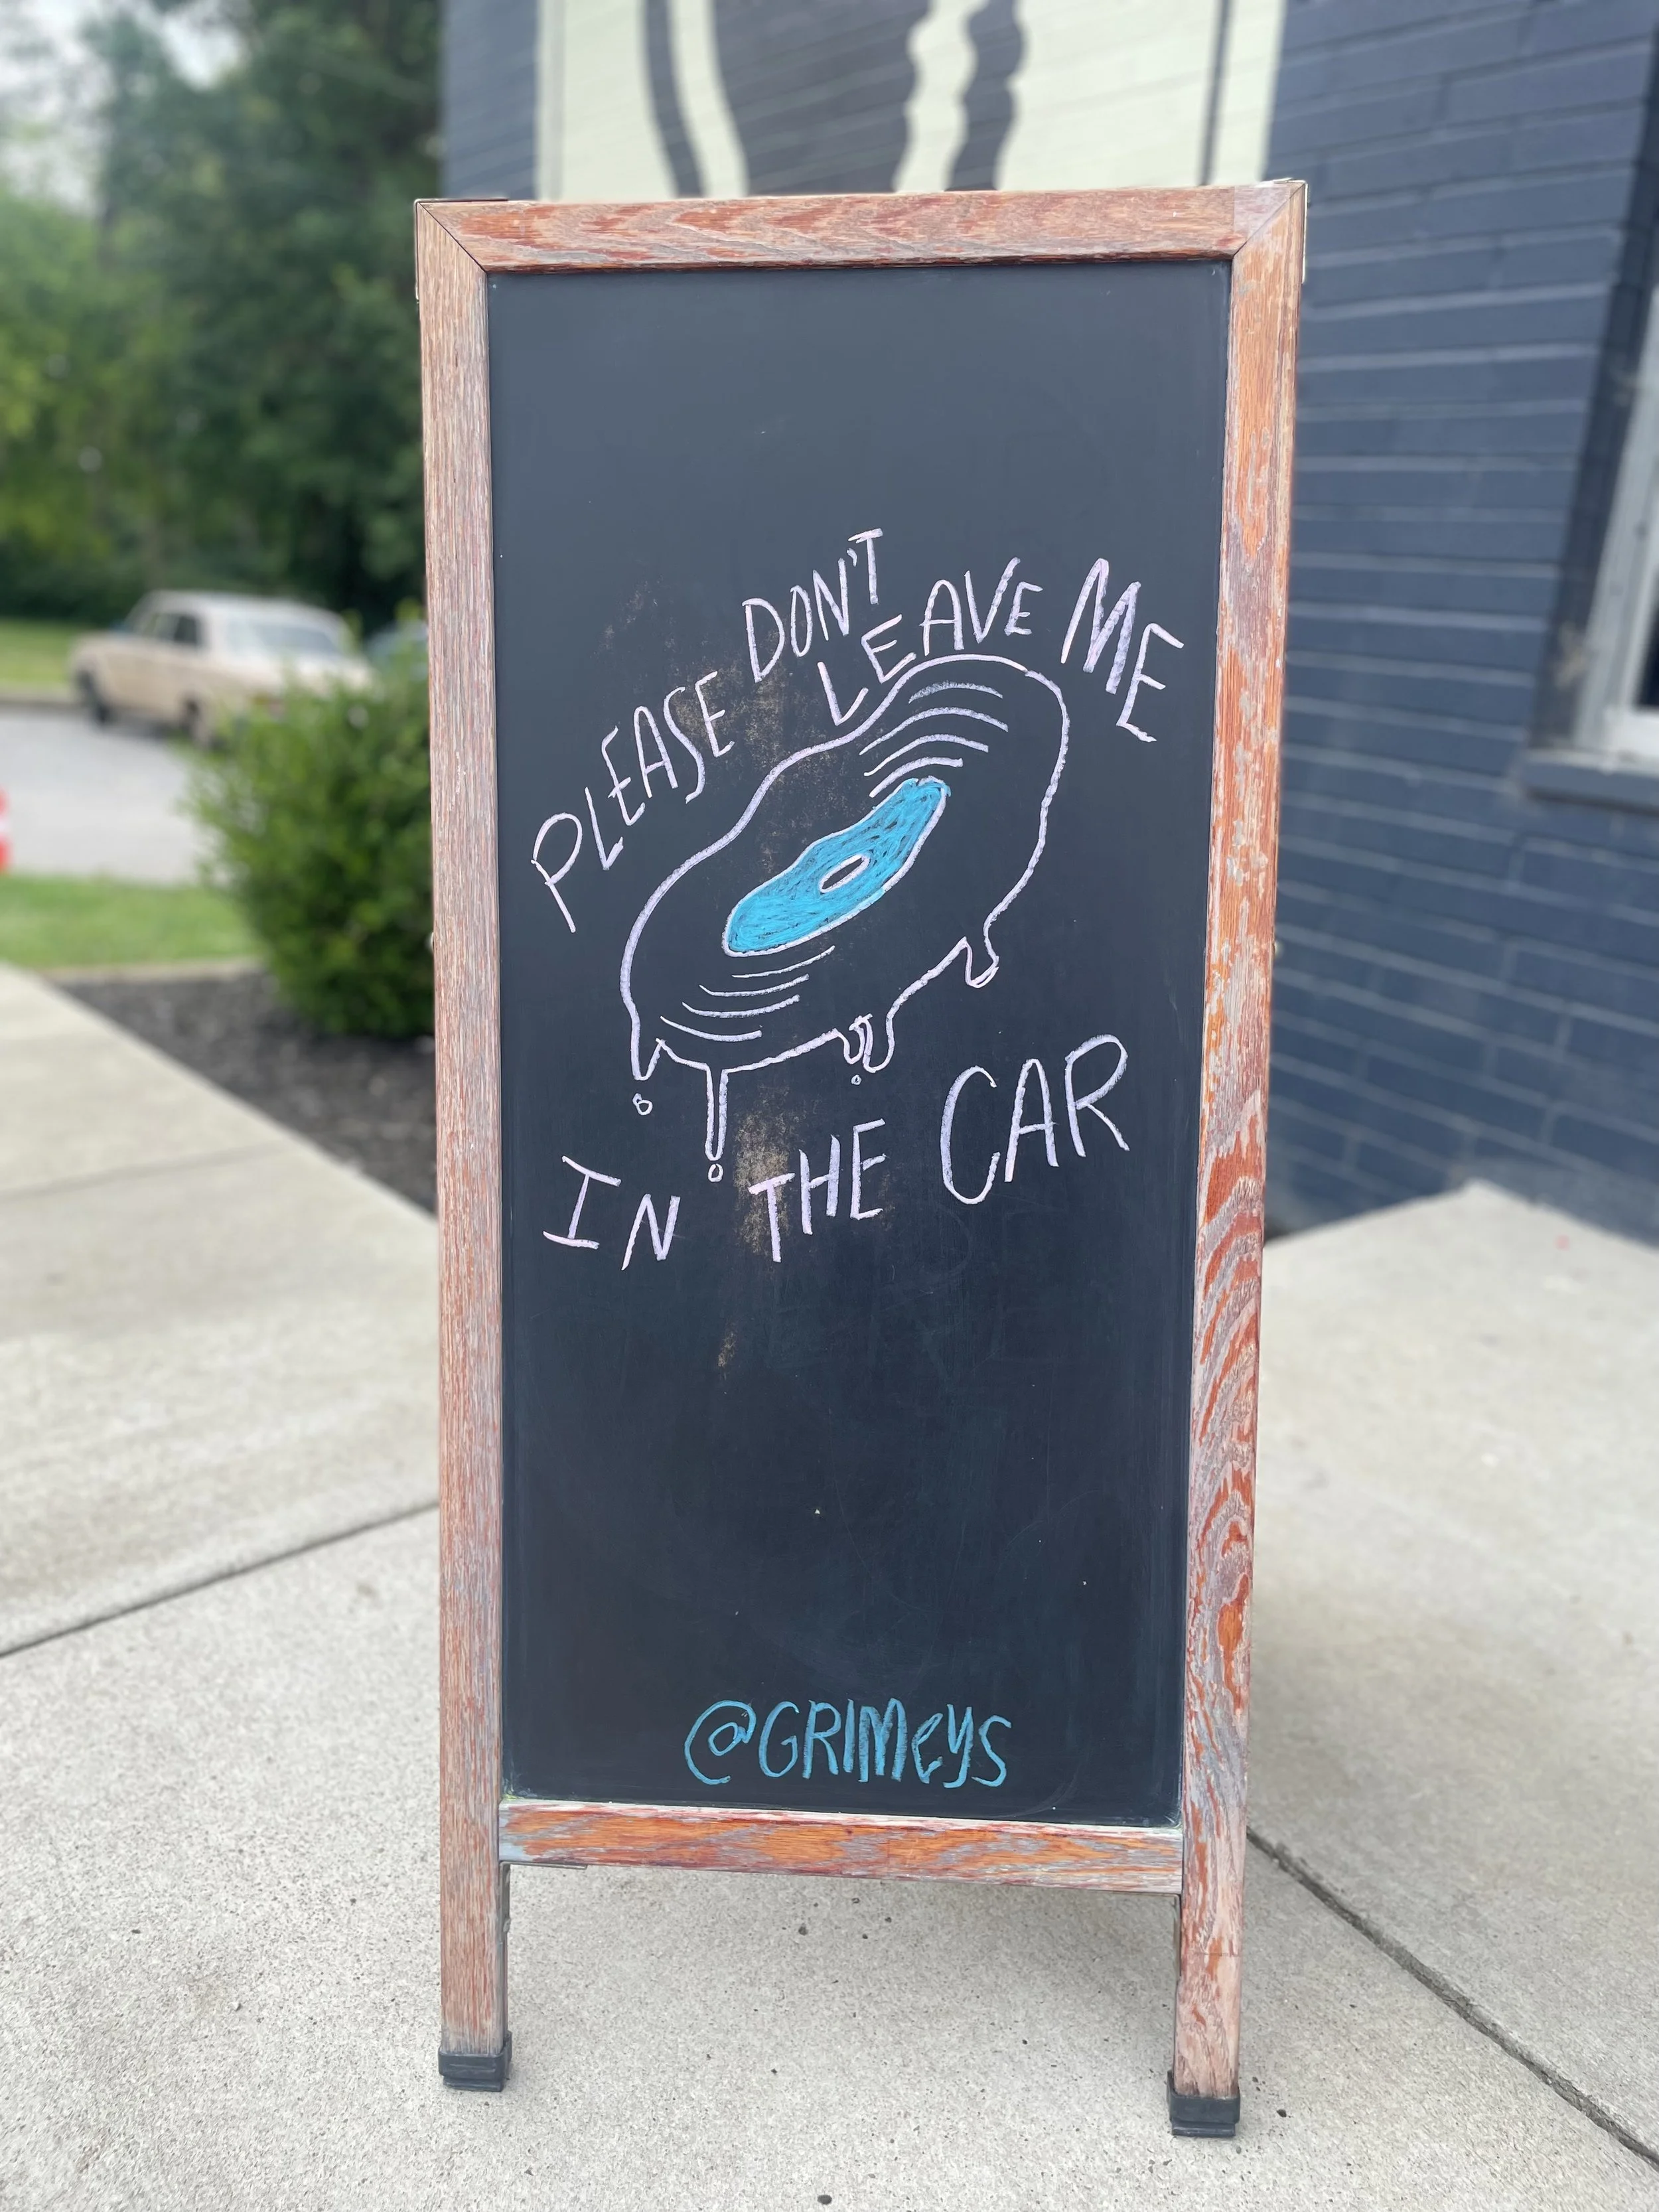 PLEASE DON'T LEAVE ME
IN THE CAR
@GRIMeyS